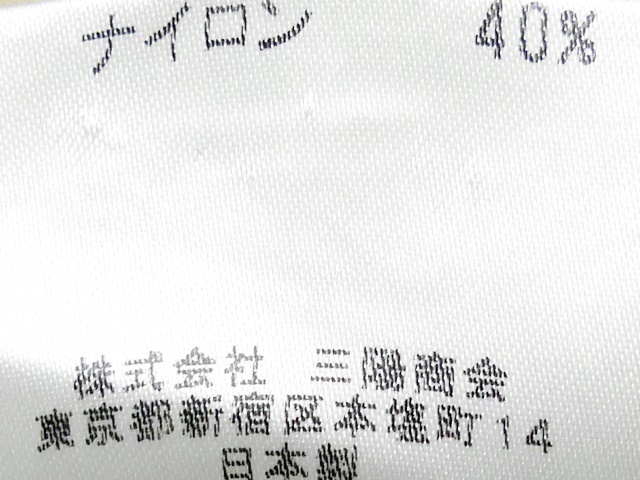 ナイロン 40%
株式会社 三陽商会
東京都新宿区本塩町14
日本製